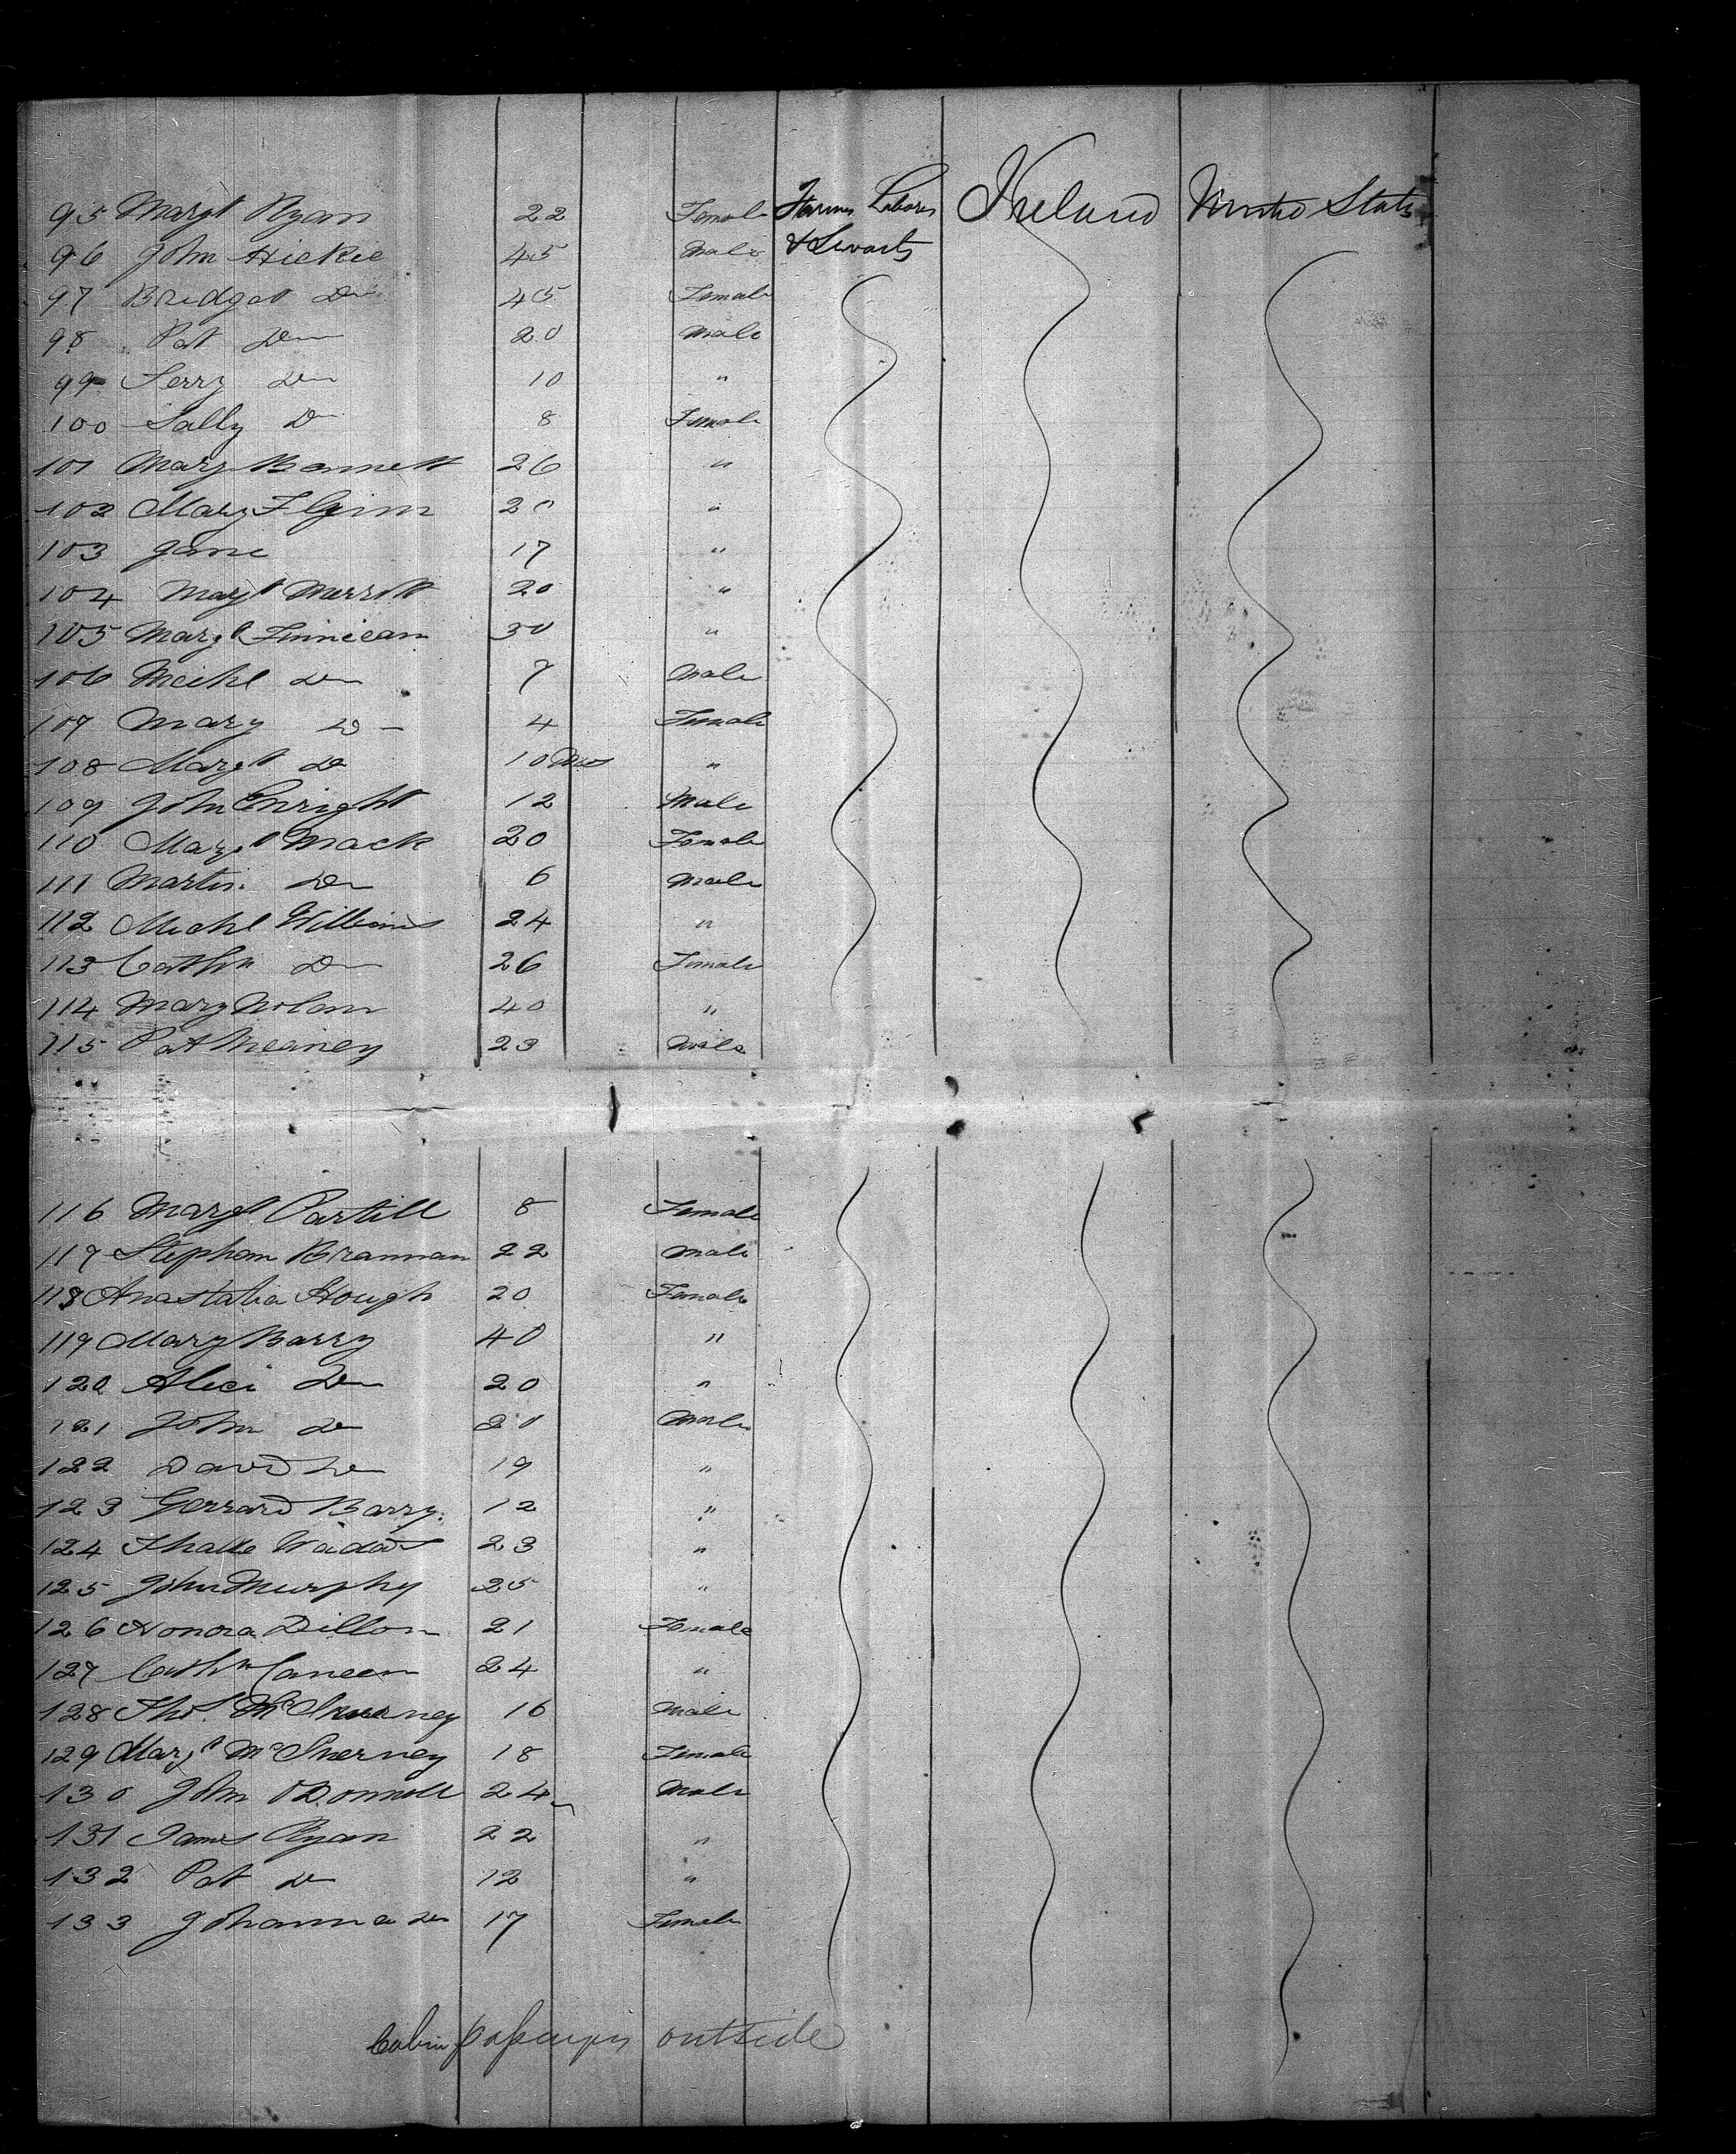 95 Margt Ryan 22 Female Farmers Labores Ireland United States
96 John Hickie 45 Male & Servants
97 Bridget Do 45 Female
98 Pat Do 20 Male
99 Jerry Do 10 "
100 Sally Do 8 Female
101 Mary Barnett 26 "
102 Mary Flynn 20 "
103 Jane 17 "
104 Margt Merritt 20 "
105 Margt Finnican 30 "
106 Michl Do 7 Male
107 Mary Do 4 Female
108 Margt Do 10 Mos "
109 John Enright 12 Male
110 Margt Mack 20 Female
111 Martin Do 6 Male
112 Michl Williams 24 "
113 Cathn Do 26 Female
114 Mary Nolan 40 "
115 Pat Meaney 23 Male
116 Margt Partill 8 Female
117 Stephen Brannan 22 Male
118 Anastatia Hough 20 Female
119 Mary Barry 40 "
120 Alice Do 20 "
121 John Do 20 Male
122 David Do 19 "
123 Gerrard Barry 12 "
124 23 "
125 John Murphy 25 "
126 Honora Dillon 21 Female
127 Cathn Caneen 24 "
128 Thos. McInerney 16 Male
129 Margt McInerney 18 Female
130 John O'Donnell 24 Male
131 James Ryan 22 "
132 Pat Do 12 "
133 Johanna Do 17 Female
Cabin passengers outside